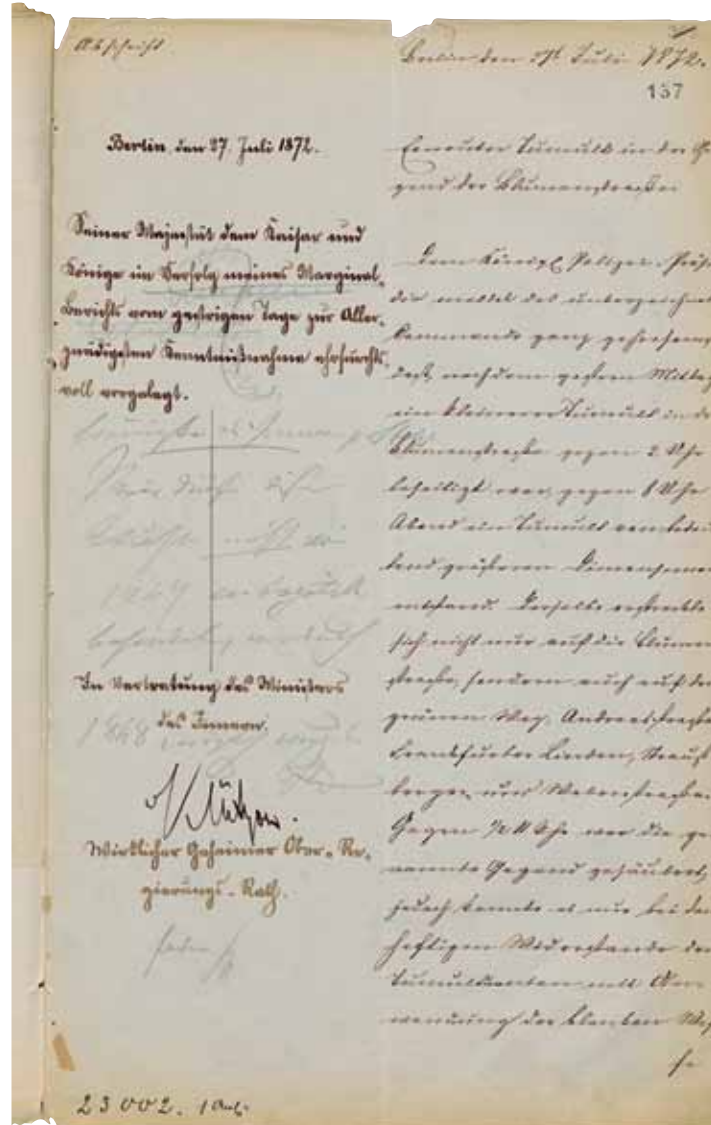 Abschrift
Berlin, den 27. Juli 1872.
Seiner Majestät dem Kaiser und
Könige im Verfolg meines Marginal-
Berichts vom gestrigen Tage zur Aller-
gnädigsten Kenntnißnahme ehrfurchts-
voll vorgelegt.
In Vertretung des Ministers
des Innern.
Wirklicher Geheimer Ober-Re-
gierungs-Rath.
23002. 1 Anl.
Berlin den 27t Juli 1872.
157
Erneuter Tumult in der Ge
gend der Blumenstraße
Dem Königl Polizei-Präsi
die meldet das unterzeichnete
Kommando ganz gehorsamst
daß, nachdem gestern Mittag
ein kleinerer Tumult in der
Blumenstraße gegen 2 Uhr
beseitigt war, gegen 8 Uhr
Abend ein Tumult von bedeu
tend größeren Dimensionen
entstand. Derselbe erstreckte
sich nicht nur auf die Blumen
straße, sondern auch auf den
grünen Weg, Andreasstraße
Frankfurter Linden, Strauß
berger und Weberstraße.
Gegen ½ 11 Uhr war die ge
nannte Gegend gesäubert,
jedoch konnte es nur bei dem
heftigen Widerstande der
Tumultuanten mit An
wendung der blanken Waf
fe